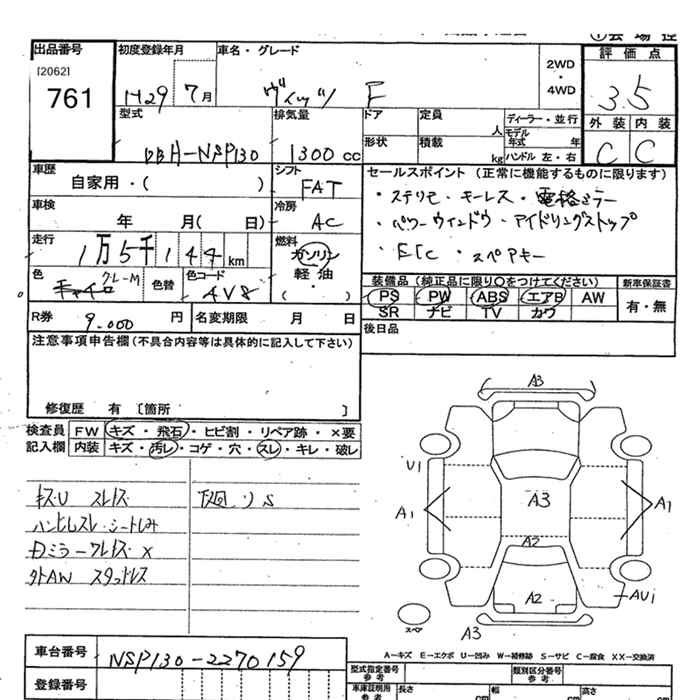 出品番号
[2062]
761
初度登録年月
H29 7月
車名・グレード
ヴィッツ F
2WD
・
4WD
評価点
3.5
外装 内装
C C
型式
DBH-NSP130
排気量
1300 cc
ドア
定員
人
ディーラー・並行
モデル年式 年
形状
積載
kg
ハンドル 左・右
車歴
自家用・( )
シフト
FAT
車検
年 月( 日)
冷房
AC
走行
1万5千144 km
燃料
ガソリン
軽油
・
( )
色
クレーM
色替
色コード
4V8
R券
9.000 円
名変期限 月 日
セールスポイント (正常に機能するものに限ります)
・ステリモ・キーレス・電格ミラー
・パワーウインドウ・アイドリングストップ
・ETC ・スペアキー
装備品(純正品に限り○をつけてください)
新車保証書
PS PW ABS エアB AW
SR ナビ TV カワ
有・無
後日品
注意事項申告欄(不具合内容等は具体的に記入して下さい)
修復歴 有 〔箇所 〕
検査員
記入欄
FW キズ・飛石・ヒビ割・リペア跡・×要
内装 キズ・汚レ・コゲ・穴・スレ・キレ・破レ
キズ・U スレキズ
下廻りS
ハンドルスレ・シートしみ
Dミラークレキズ X
外AW スタッドレス
A3
U1
A1
A3
A1
A2
A2
AU1
スペア
A3
A-キズ E-エクボ U-凹み W-補修跡 S-サビ C-腐食 XX-交換済
車台番号
NSP130-2270159
登録番号
型式指定番号
参考
類別区分番号
参考
車庫証明用
参考
長さ cm
幅 cm
高さ cm